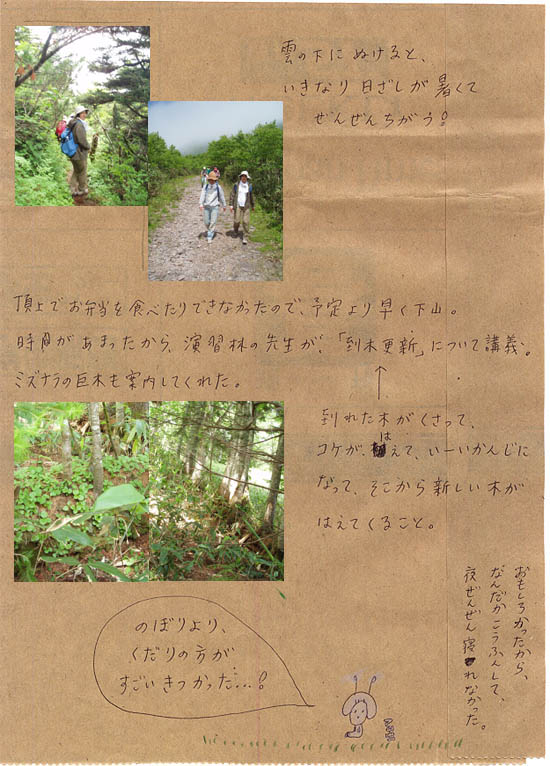 雲の下にぬけると、
いきなり日ざしが暑くて
ぜんぜんちがう!
頂上でお弁当を食べたりできなかったので、予定より早く下山。
時間があまったから、演習林の先生が、「到木更新」について講義。
ミズナラの巨木も案内してくれた。
到れた木がくさって、
コケがはえて、いーいかんじに
なって、そこから新しい木が
はえてくること。
のぼりより、
くだりの方が
すごいきつかった…!
おもしろかったから、
なんだかこうふんして、
夜ぜんぜん寝れなかった。